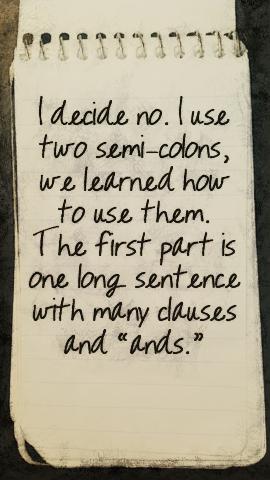 I decide no. I use
two semi-colons,
we learned how
to use them.
The first part is
one long sentence
with many clauses
and “ands.”